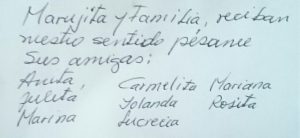 Marujita y Familia, reciban
nuestro sentido pésame
Sus amigas:
Anita, Carmelita Mariana
Julieta Yolanda Rosita
Marina Lucrecia